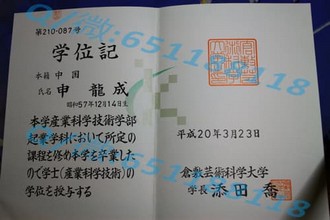 QV/微:651148118
第210-087号
学位記
本籍 中国
氏名 申 龍成
昭和57年12月14日生
本学産業科学技術学部
起業学科において所定の
課程を修め本学を卒業した
ので学士(産業科学技術)の
学位を授与する
平成20年3月23日
倉敷芸術科学大学
学長 添田 喬